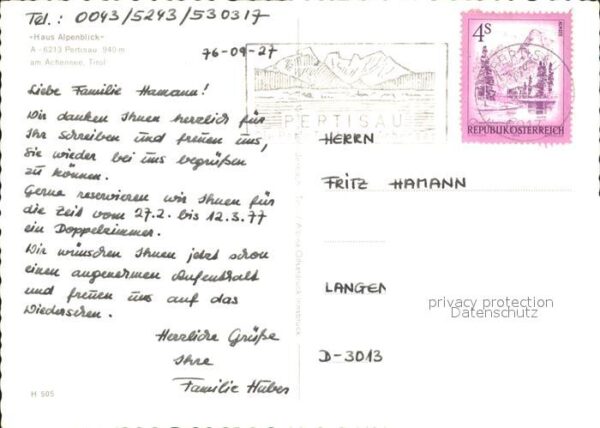 Tel.: 0043/5243/530317
«Haus Alpenblick»
A - 6213 Pertisau 940 m
am Achensee, Tirol
76-09-27
Liebe Familie Hamann!
Wir danken Ihnen herzlich für
Ihr Schreiben und freuen uns,
Sie wieder bei uns begrüßen
zu können.
Gerne reservieren wir Ihnen für
die Zeit vom 27.2. bis 12.3.77
ein Doppelzimmer.
Wir wünschen Ihnen jetzt schon
einen angenehmen Aufenthalt
und freuen uns auf das
Wiedersehen.
Herzliche Grüße
Ihre
Familie Huber
H 505
PERTISAU
4S
REPUBLIK ÖSTERREICH
HERRN
FRITZ HAMANN
LANGEN
privacy protection
Datenschutz
D-3013